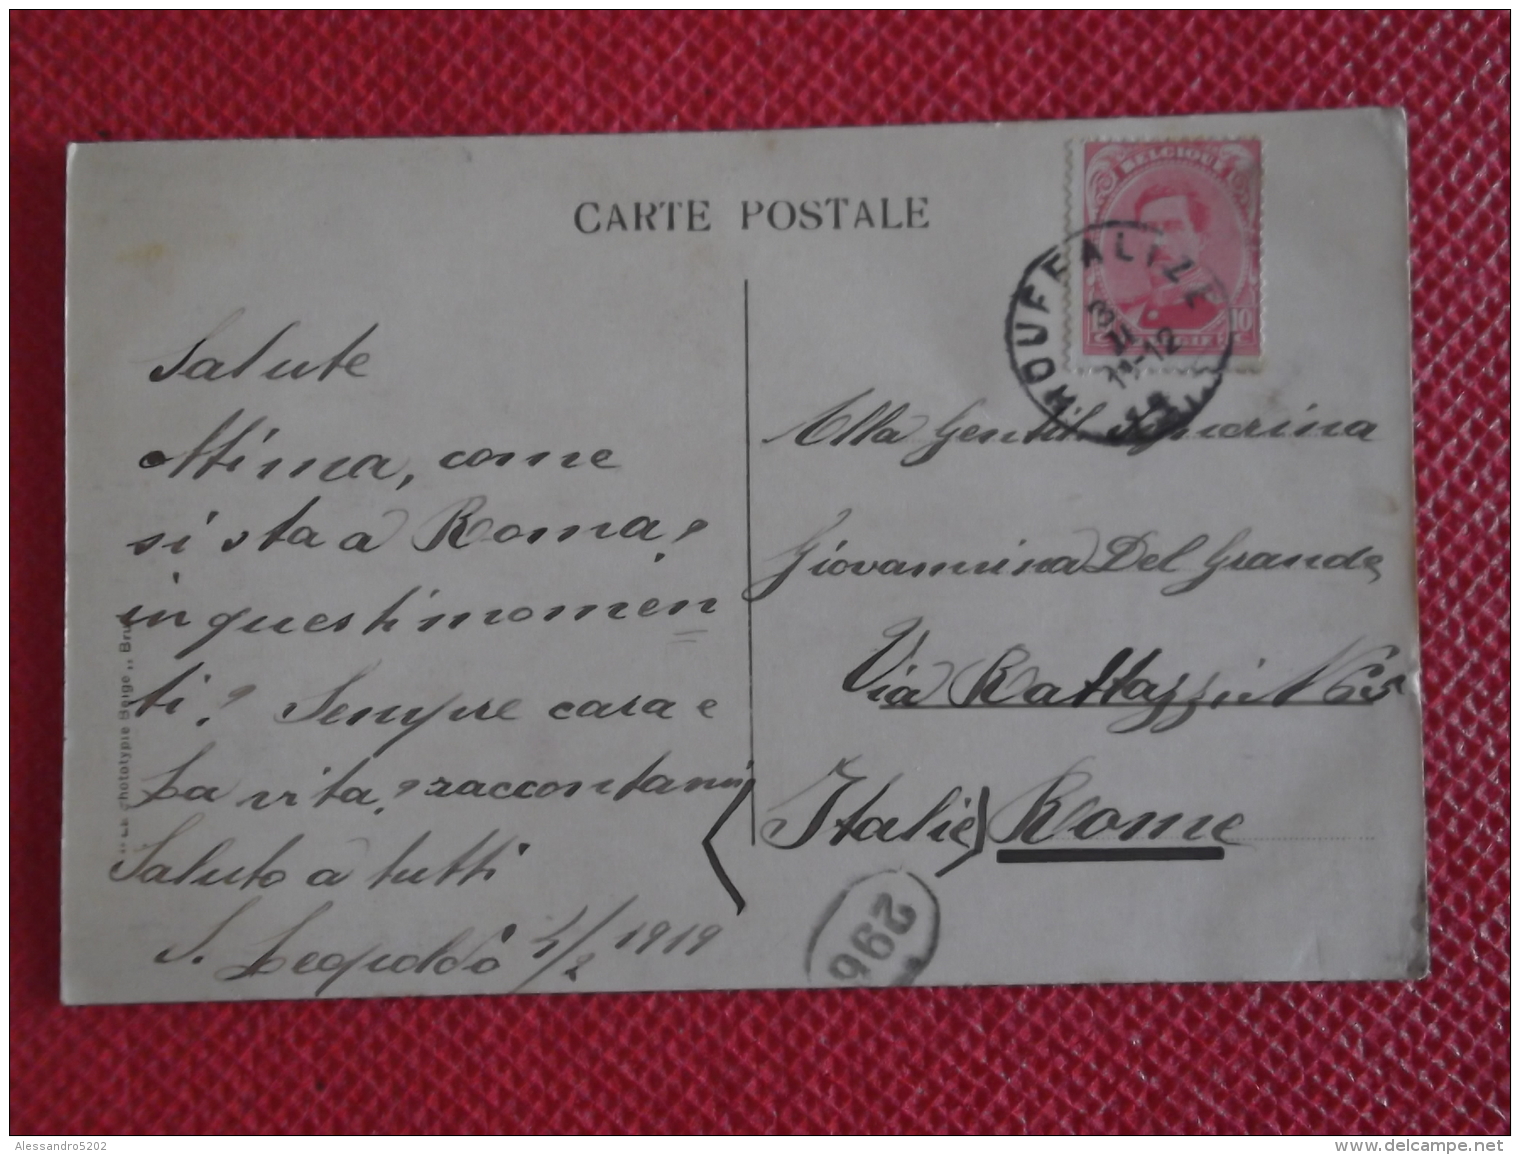 CARTE POSTALE
BELGIQUE
10
BELGIË
HOUFFALIZE
3
II
11-12
Salute
ottima, come
si sta a Roma?
in questi momen
ti? Sempre cara e
La vita? raccontami
Saluto a tutti
S. Leopoldo 4/2 1919
Phototypie Belge „ Bru
Alla Gentil. Signorina
Giovannina Del Grande
Via Rattazzi N
(Italie) Rome
296
Alessandro5202
www.delcampe.net